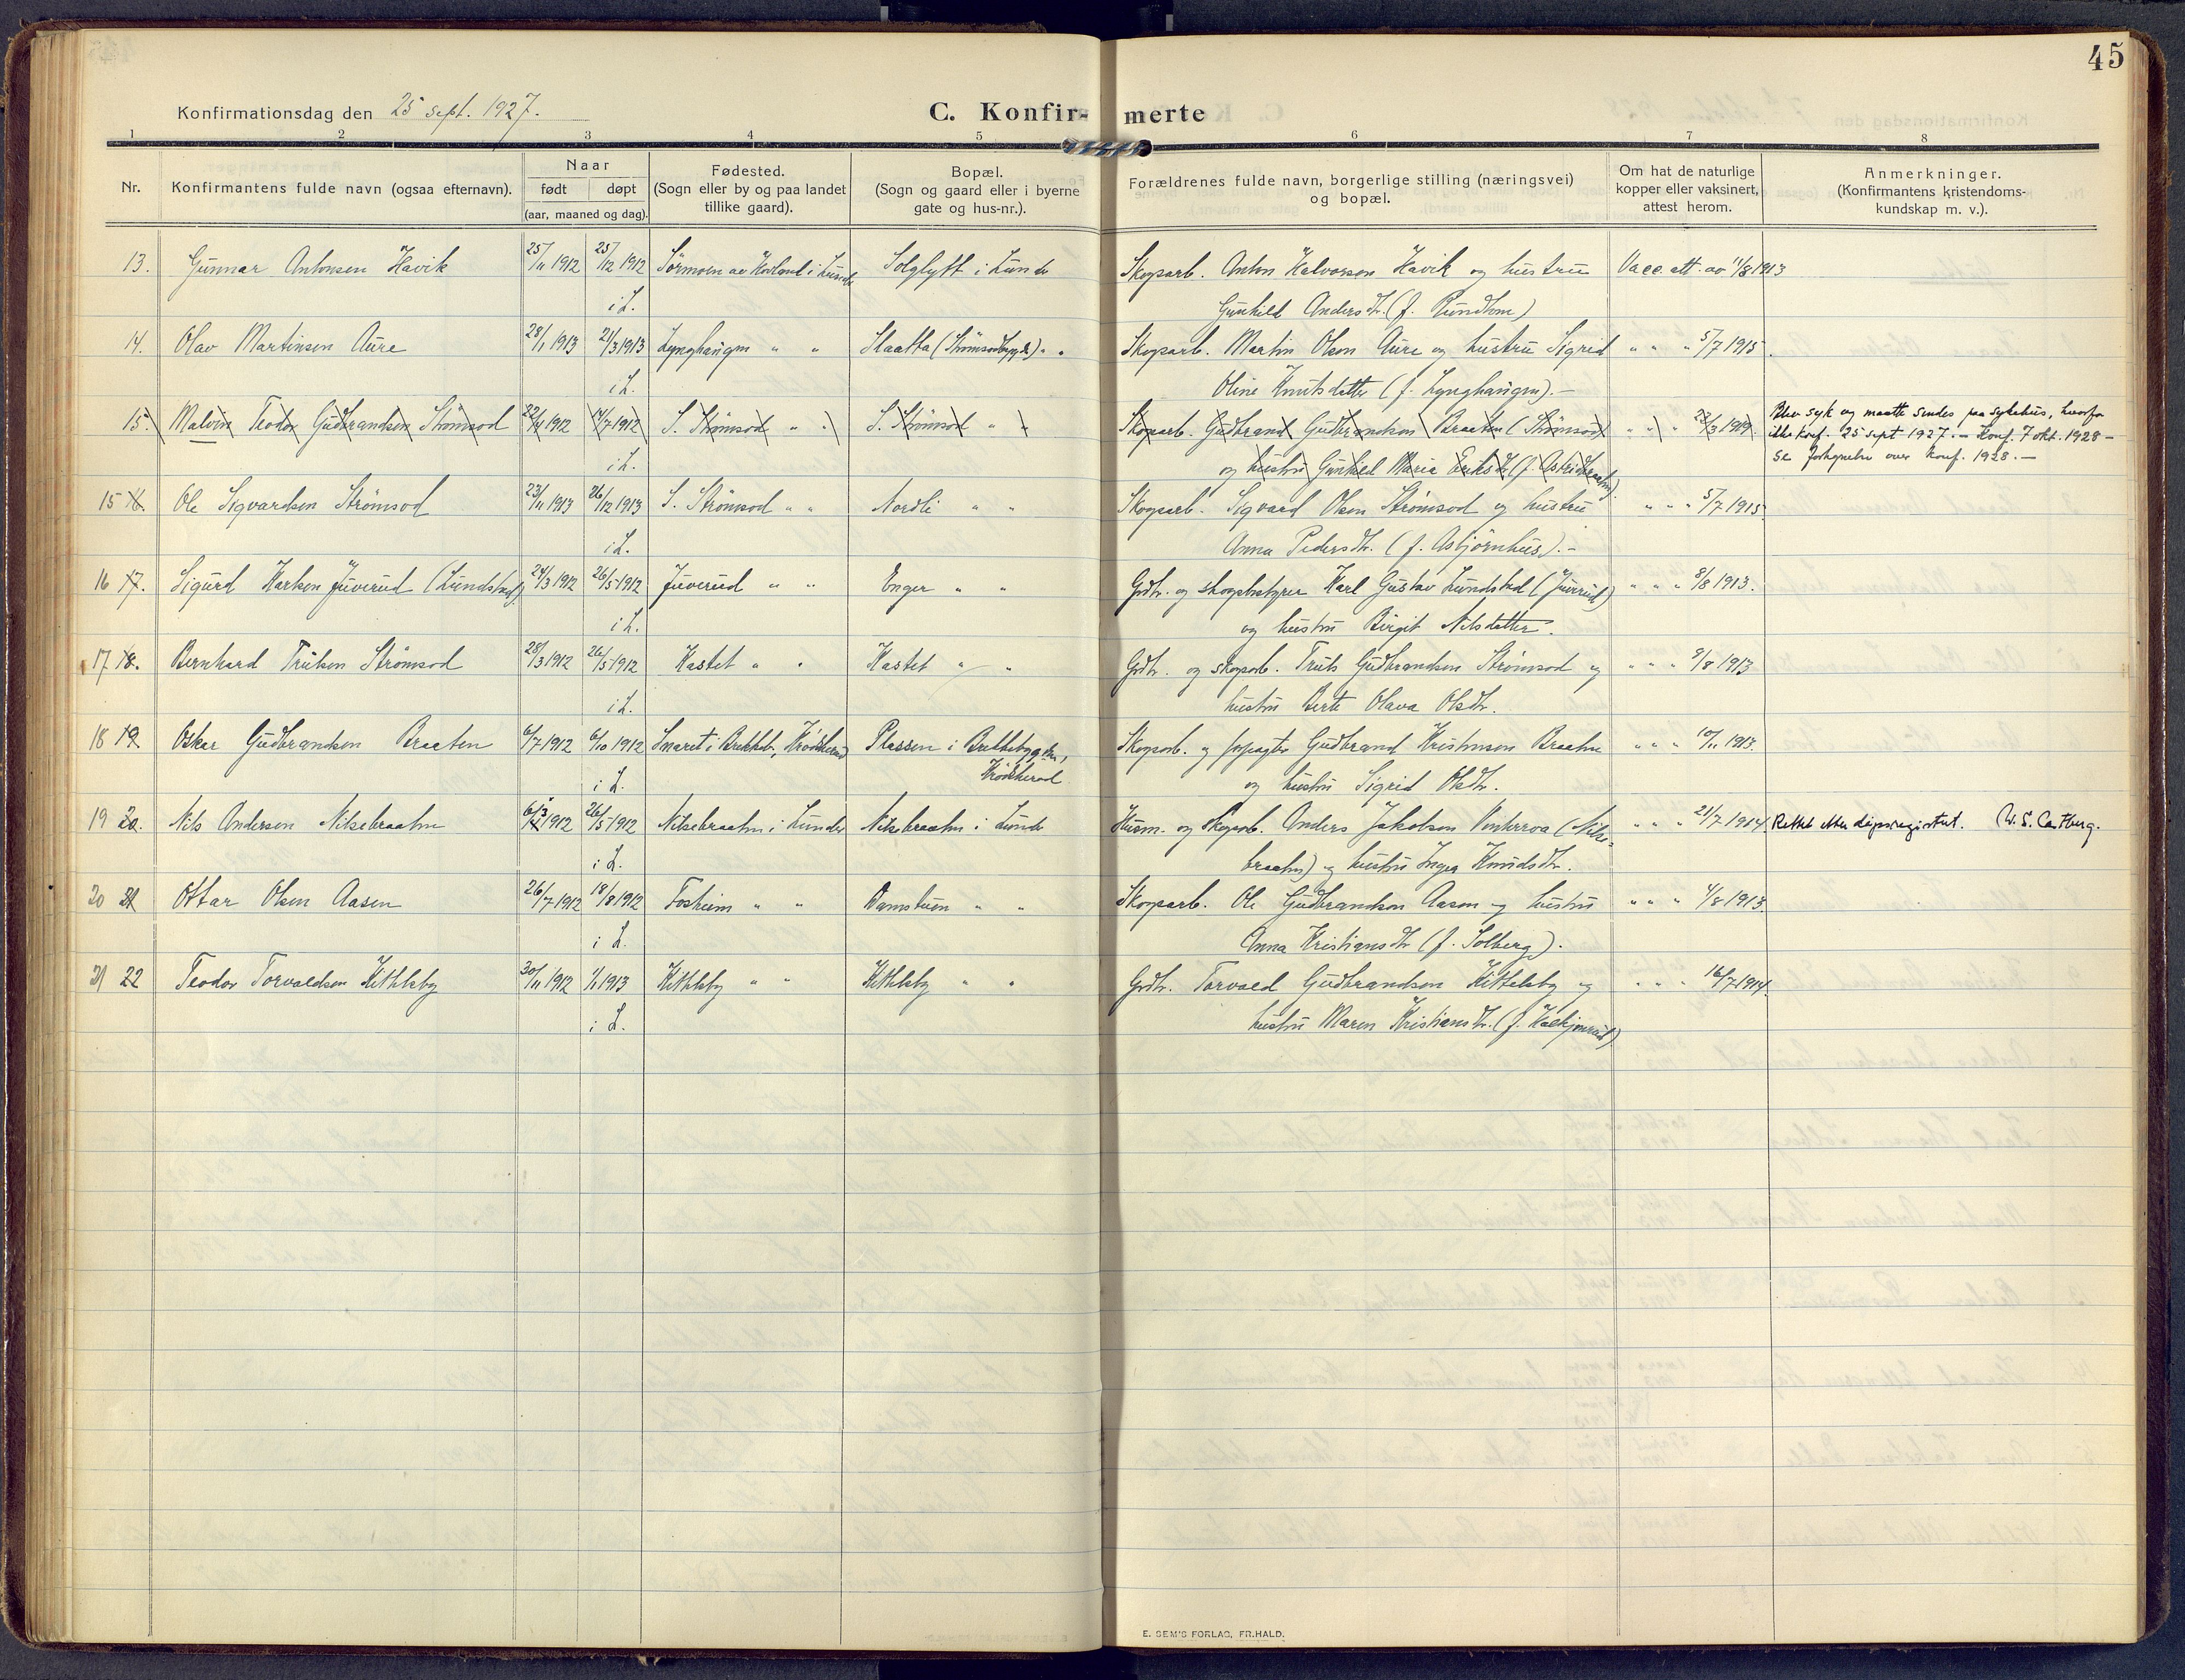 45
Konfirmationsdag den 25 sept. 1927.
C. Konfir- merte
1 2 3 4 5 6 7 8
Nr.
Konfirmantens fulde navn (ogsaa efternavn).
Naar
født døpt
(aar, maaned og dag).
Fødested.
(Sogn eller by og paa landet
tillike gaard).
Bopæl.
(Sogn og gaard eller i byerne
gate og hus-nr.).
Forældrenes fulde navn, borgerlige stilling (næringsvei)
og bopæl.
Om hat de naturlige
kopper eller vaksinert,
attest herom.
Anmerkninger.
(Konfirmantens kristendoms-
kundskap m. v.).
13. Gunnar Antonsen Havik 25/11 1912 25/12 1912 Sørmoen av i Lunder Solgløtt i Lunder Skogsarb. Anton Halvorsen Havik og hustru Vacc. att. av 11/8 1913
i L. Gunhild Andersdtr. (f. Rundtom)
14. Olav Martinsen Aure 28/1 1913 21/3 1913 Lynghaugen " " Slaatta (Strømsodbygda) " " Skogsarb. Martin Olsen Aure og hustru Sigrid " " " 5/7 1915.
i L. Oline Knutsdatter (f. Lynghaugen).-
15. Malvin Teodor Gudbrandsen Strømsod 22/4 1912 14/7 1912 S. Strømsod " " S. Strømsod " " Skogsarb. Gudbrand Gudbrandsen Braaten (Strømsod) " " 23/3 1914. Blev syk og maatte sendes paa sykehus, hvorfor
ikke konf. 25 sept 1927. - Konf. 7 okt. 1928 -
i L. og hustru Gunhild Marie Eriksdtr. (f. Astridbraaten) se fortegnelse over konf. 1928. -
15 16. Ole Sigvardsen Strømsod 23/11 1913 26/12 1913 S. Strømsod " " Nordli " " Skogsarb. Sigvard Olsen Strømsod og hustru " " " 5/7 1915.
i L. Anna Pedersdtr. (f. Asbjørnhus). -
16 17. Sigurd Karlsen Juverud (Lundstad) 24/3 1912 26/5 1912 Juverud " " Enger " " Grdbr. og skogbestyrer Karl Gustav Lundstad (Juverud) " " " 8/8 1913.
i L. og hustru Birgit Nilsdatter.
17 18. Bernhard Trulsen Strømsod 28/3 1912 26/5 1912 Hastet " " Hastet " " Grdbr. og skogsarb. Truls Gudbrandsen Strømsod og " " " 9/8 1913
i L. hustru Berte Olava Olsdtr.
18 19. Oskar Gudbrandsen Braaten 6/7 1912 6/10 1912 Snaret i Brekkeb., Krødsherad Plassen i Brekkebygda, Skogsarb. og forpagter Gudbrand Kristensen Braaten " " " 10/11 1913.
i L. Krødsherad og hustru Sigrid Olsdtr.
19 20. Nils Andersen Nilsebraaten 6/3 1912 26/5 1912 Nilsebraaten i Lunder Nilsebraaten i Lunder Husm. og skogsarb. Anders Jakobsen (Nilse- " " " 21/7 1914. Rettet efter dåpsregistret. W. S. Castberg.
i L. braaten) og hustru Inga Knudsdtr.
20 21 Ottar Olsen Aasen 26/7 1912 18/8 1912 Foskeim " " Damstuen " " Skogsarb. Ole Gudbrandsen Aasen og hustru " " " 4/8 1913.
i L. Anna Kristiansdtr (f. Solberg).
21 22 Teodor Torvaldsen Kittelsby 30/11 1912 1/1 1913 Kittelsby " " Kittelsby " " Grdbr. Torvald Gudbrandsen Kittelsby og " " " 16/7 1914.
i L. hustru Maren Kristiansdtr. (f.
E. SEM'S FORLAG, FR.HALD.